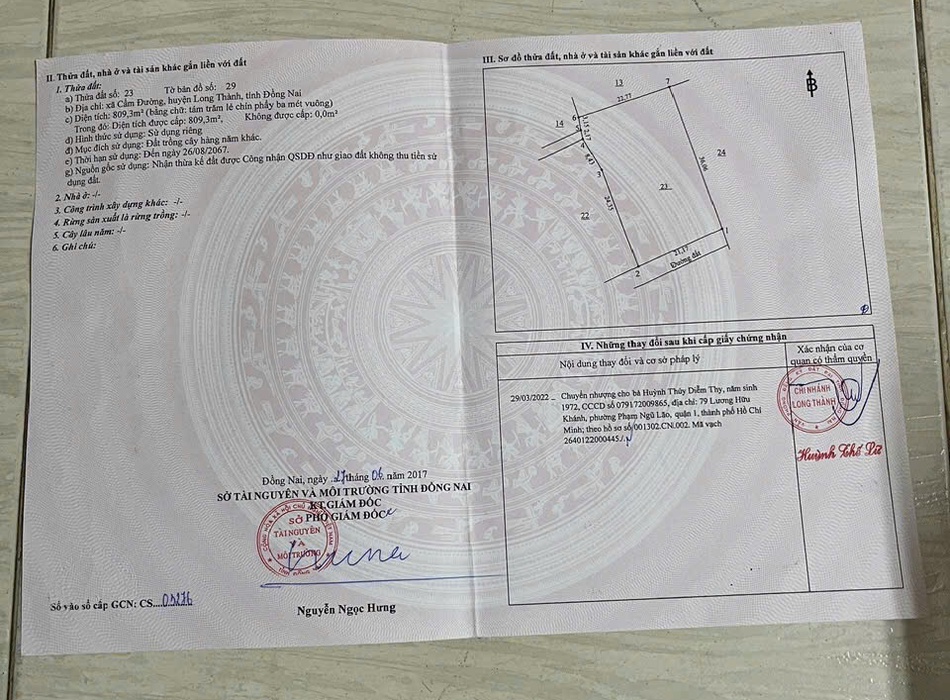 II. Thửa đất, nhà ở và tài sản khác gắn liền với đất
1. Thửa đất:
a) Thửa đất số: 23 Tờ bản đồ số: 29
b) Địa chỉ: xã Cẩm Đường, huyện Long Thành, tỉnh Đồng Nai
c) Diện tích: 809,3m² (bằng chữ: tám trăm lẻ chín phẩy ba mét vuông)
Trong đó: Diện tích được cấp: 809,3m², Không được cấp: 0,0m²
d) Hình thức sử dụng: Sử dụng riêng
đ) Mục đích sử dụng: Đất trồng cây hàng năm khác.
e) Thời hạn sử dụng: Đến ngày 26/08/2067.
g) Nguồn gốc sử dụng: Nhận thừa kế đất được Công nhận QSDĐ như giao đất không thu tiền sử
dụng đất.
2. Nhà ở: -/-
3. Công trình xây dựng khác: -/-
4. Rừng sản xuất là rừng trồng: -/-
5. Cây lâu năm: -/-
6. Ghi chú:
Đồng Nai, ngày 27 tháng 06 năm 2017
SỞ TÀI NGUYÊN VÀ MÔI TRƯỜNG TỈNH ĐỒNG NAI
KT.GIÁM ĐỐC
PHÓ GIÁM ĐỐC
SỞ
TÀI NGUYÊN
VÀ
MÔI TRƯỜNG
Nguyễn Ngọc Hưng
Số vào sổ cấp GCN: CS....
III. Sơ đồ thửa đất, nhà ở và tài sản khác gắn liền với đất
13
7
22,77
B
6
14
5
4
24
3
38,06
23
24,35
22
1
21,17
Đường đất
2
IV. Những thay đổi sau khi cấp giấy chứng nhận
Nội dung thay đổi và cơ sở pháp lý
Xác nhận của cơ
quan có thẩm quyền
29/03/2022 _ Chuyển nhượng cho bà Huỳnh Thủy Diễm Thy, năm sinh
1972, CCCD số 079172009865, địa chỉ: 79 Lương Hữu
Khánh, phường Phạm Ngũ Lão, quận 1, thành phố Hồ Chí
Minh; theo hồ sơ số 001302.CN.002. Mã vạch
2640122000445./.
CHI NHÁNH
LONG THÀNH